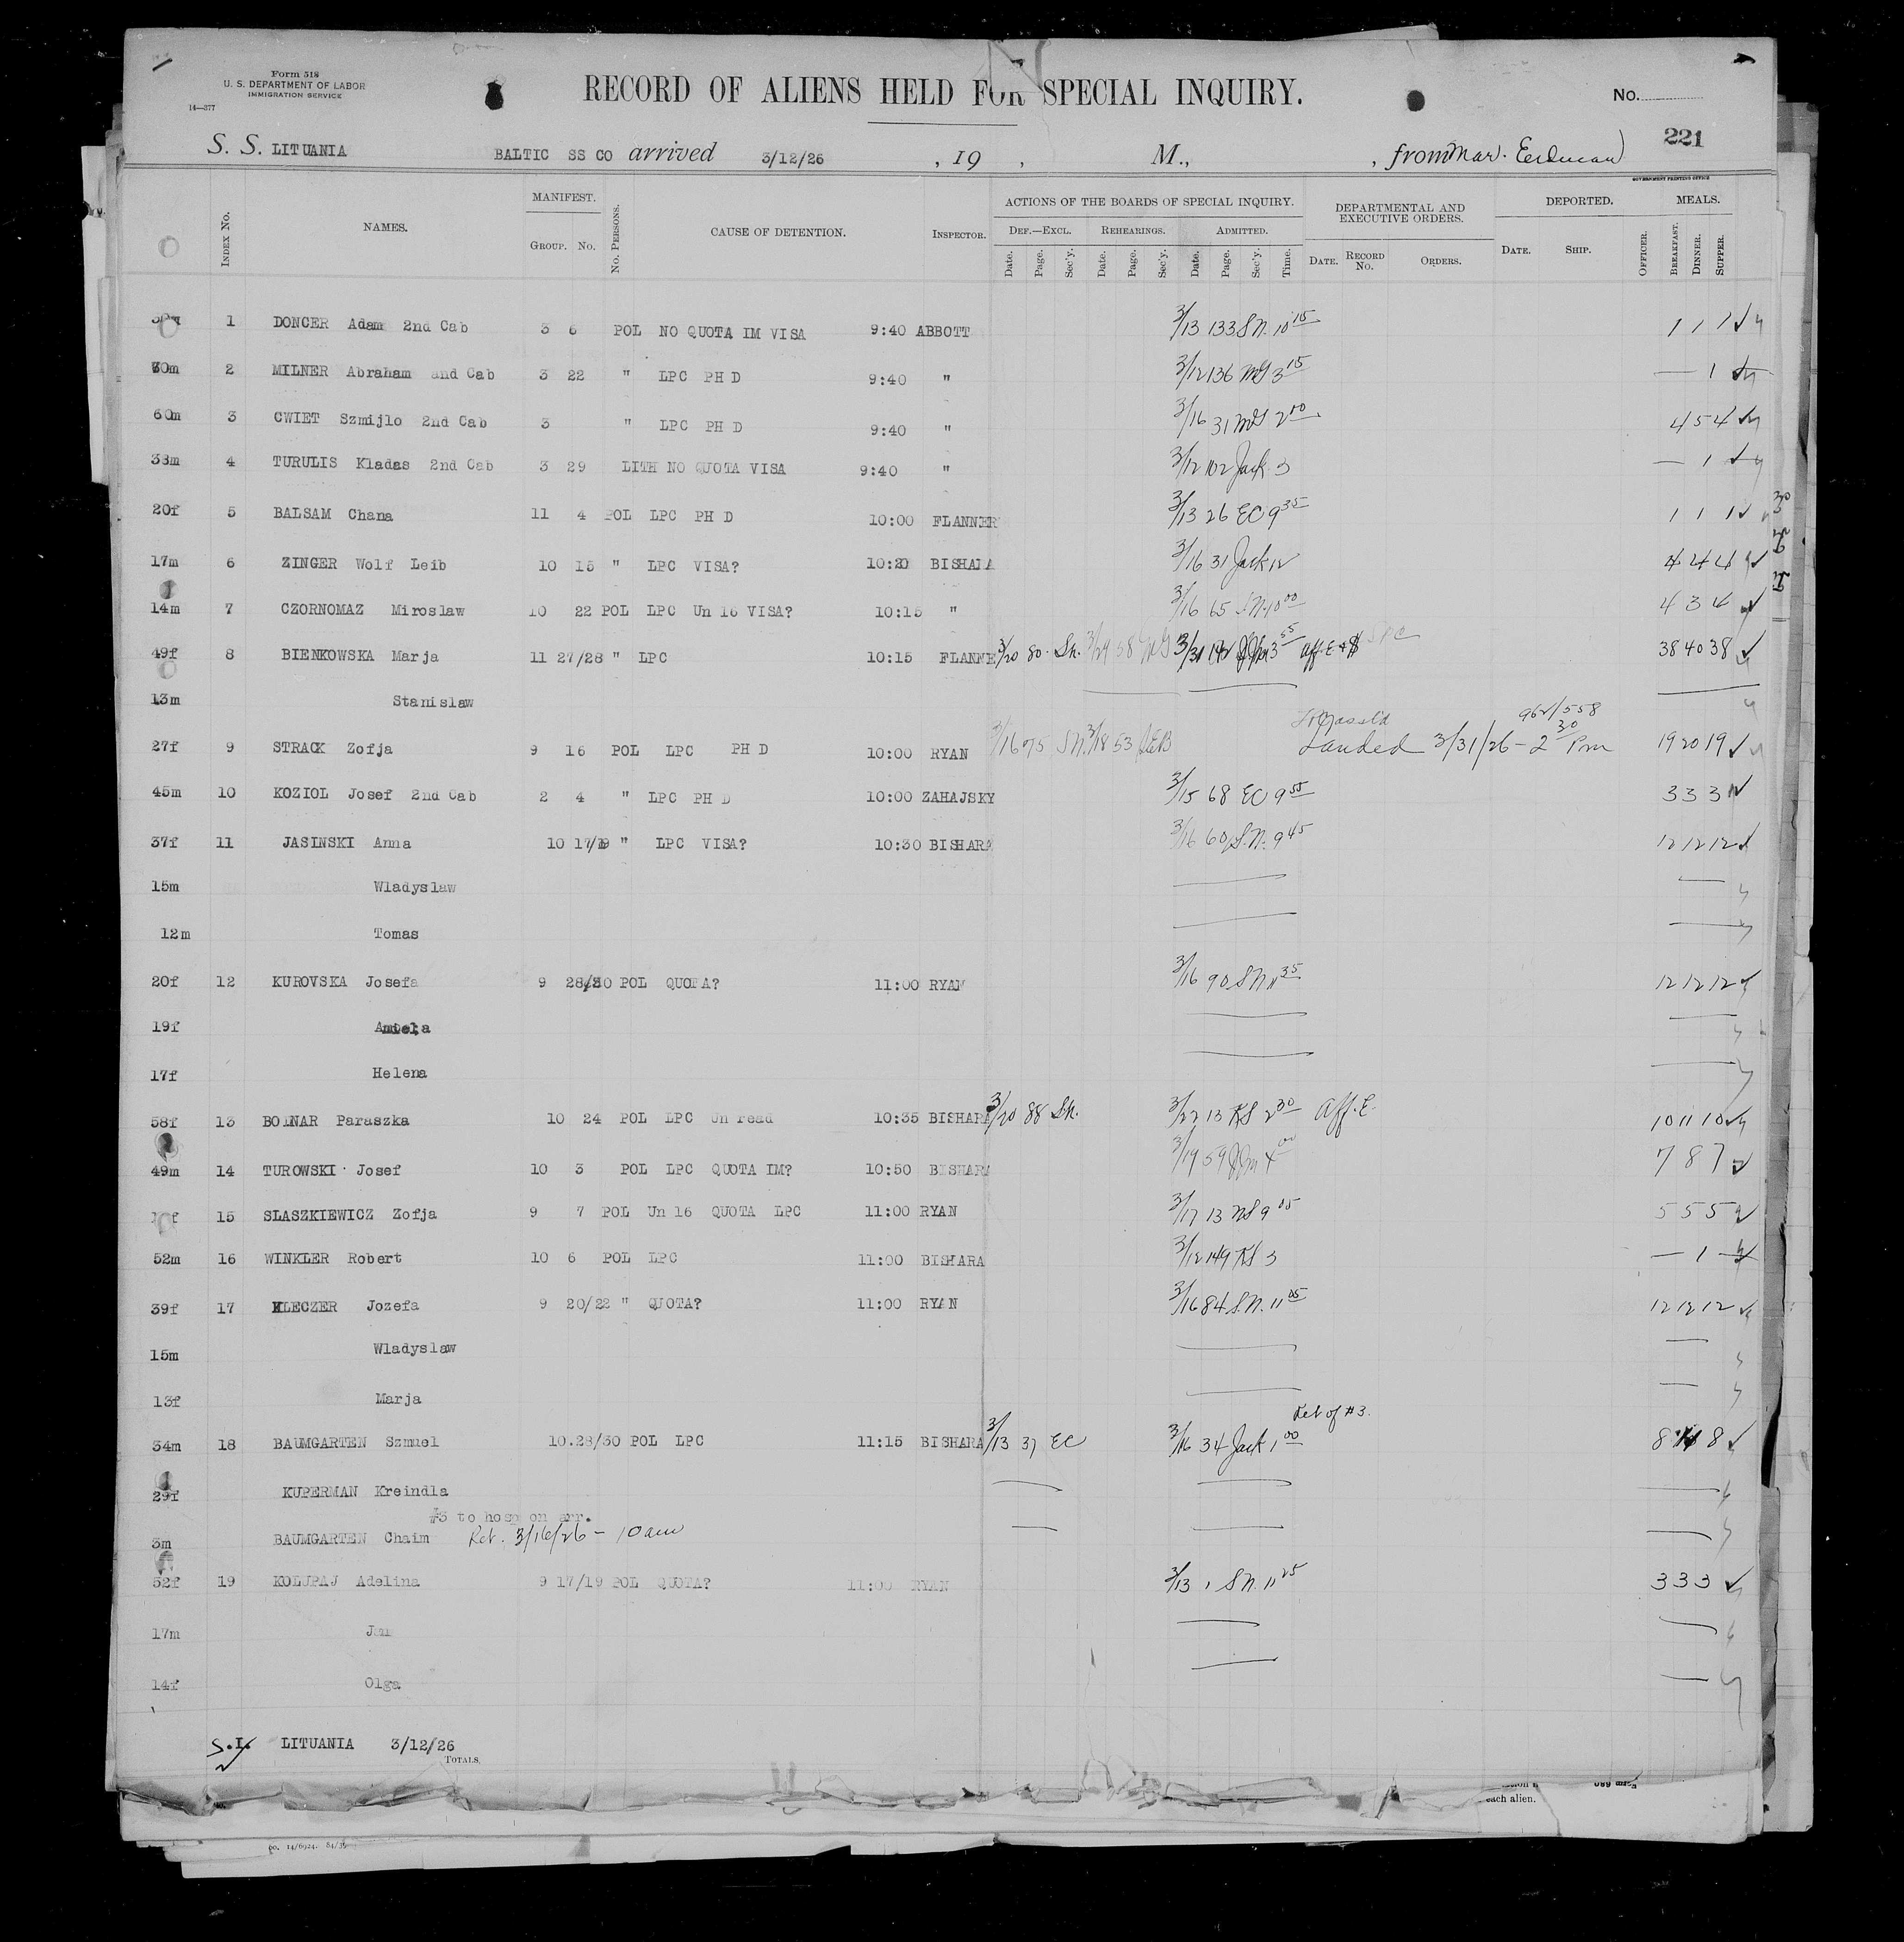 Form 518
U. S. DEPARTMENT OF LABOR
IMMIGRATION SERVICE
14—377
RECORD OF ALIENS HELD FOR SPECIAL INQUIRY.
No.
221
S. S. LITUANIA BALTIC SS CO arrived 3/12/26 , 19 , M., , from Mar.
GOVERNMENT PRINTING OFFICE
INDEX NO. NAMES. MANIFEST. GROUP. NO. NO. PERSONS. CAUSE OF DETENTION. INSPECTOR. ACTIONS OF THE BOARDS OF SPECIAL INQUIRY. DEF.—EXCL. REHEARINGS. ADMITTED. DEPARTMENTAL AND EXECUTIVE ORDERS. DEPORTED. MEALS.
Date. Page. Sec'y. Date. Page. Sec'y. Date. Page. Sec'y. Time. DATE. RECORD NO. ORDERS. DATE. SHIP. OFFICER. BREAKFAST. DINNER. SUPPER.
1 DONCER Adam 2nd Cab 3 6 POL NO QUOTA IM VISA 9:40 ABBOTT 3/13 133 S.N. 10 15 1 1 1
2 MILNER Abraham and Cab 3 22 " LPC PH D 9:40 " 3/12 136 MG 3 15 — 1
60m 3 CWIET Szmijlo 2nd Cab 3 " LPC PH D 9:40 " 3/16 31 MG 2 00 4 5 4
38m 4 TURULIS Kladas 2nd Cab 3 29 LITH NO QUOTA VISA 9:40 " 3/12 102 Jack 3 — 1
20f 5 BALSAM Chana 11 4 POL LPC PH D 10:00 FLANNER 3/13 26 EC 9 35 1 1 1
17m 6 ZINGER Wolf Leib 10 15 " LPC VISA? 10:20 BISHARA 3/16 31 Jack 12 4 4 4
14m 7 CZORNOMAZ Miroslaw 10 22 POL LPC Un 16 VISA? 10:15 " 3/16 65 S.N. 10 00 4 3 4
49f 8 BIENKOWSKA Marja 11 27/28 " LPC 10:15 FLANNE 3/20 80 Sh. 3/29 58 MG 3/31 142 3 55 Aff. E + $ 38 40 38
13m Stanislaw
962/558
27f 9 STRACK Zofja 9 16 POL LPC PH D 10:00 RYAN 3/16 75 S.N. 3/18 53 JEB Landed 3/31/26 - 2 30 Pm 19 20 19
45m 10 KOZIOL Josef 2nd Cab 2 4 " LPC PH D 10:00 ZAHAJSKY 3/15 68 EC 9 55 3 3 3
37f 11 JASINSKI Anna 10 17/19 " LPC VISA? 10:30 BISHARA 3/16 60 S.N. 9 45 12 12 12
15m Wladyslaw
12m Tomas
20f 12 KUROVSKA Josefa 9 28/30 POL QUOTA? 11:00 RYAN 3/16 90 S.N. 11 35 12 12 12
19f Amiela
17f Helena
58f 13 BODNAR Paraszka 10 24 POL LPC Un read 10:35 BISHARA 3/20 88 Sh. 3/22 13 KS 2 30 Aff. E. 10 11 10
49m 14 TUROWSKI Josef 10 3 POL LPC QUOTA IM? 10:50 BISHARA 3/19 59 JJM 4 00 7 8 7
15 SLASZKIEWICZ Zofja 9 7 POL Un 16 QUOTA LPC 11:00 RYAN 3/17 13 NS 9 05 5 5 5
52m 16 WINKLER Robert 10 6 POL LPC 11:00 BISHARA 3/12 149 KS 3 — 1 —
39f 17 KLECZER Jozefa 9 20/22 " QUOTA? 11:00 RYAN 3/16 84 S.N. 11 05 12 12 12
15m Wladyslaw
13f Marja
Ret of #3.
34m 18 BAUMGARTEN Szmuel 10.28/30 POL LPC 11:15 BISHARA 3/13 37 EC 3/16 34 Jack 1 00 8 8
29f KUPERMAN Kreindla
#3 to hosp on arr.
3m BAUMGARTEN Chaim Ret. 3/16/26 - 10 am
52f 19 KOLUPAJ Adelina 9 17/19 POL QUOTA? 11:00 RYAN 3/13 1 S.N. 11 25 3 3 3
17m Jan
14f Olga
S.I. LITUANIA 3/12/26
TOTALS.
each alien.